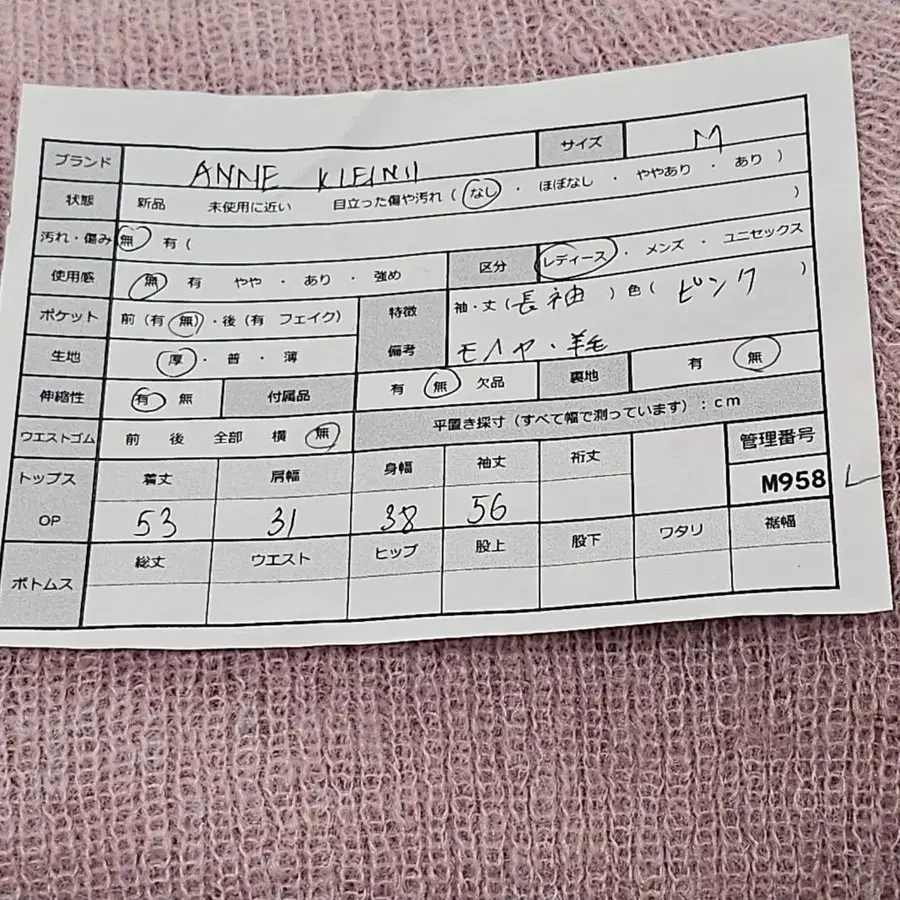 ブランド ANNE KLEIN II サイズ M
状態 新品 未使用に近い 目立った傷や汚れ ( なし ・ ほぼなし ・ ややあり ・ あり )
汚れ・傷み 無 有 ( )
使用感 無 有 やや ・ あり ・ 強め 区分 レディース ・ メンズ ・ ユニセックス
ポケット 前 (有 無) ・ 後 (有 フェイク) 特徴 袖・丈 (長袖) 色 ( ピンク )
生地 厚 ・ 普 ・ 薄 備考 モヘヤ・羊毛
伸縮性 有 無 付属品 有 無 欠品 裏地 有 無
ウエストゴム 前 後 全部 横 無 平置き採寸 (すべて幅で測っています) : cm
トップス 着丈 肩幅 身幅 袖丈 裄丈 管理番号
OP 53 31 38 56 M958
ボトムス 総丈 ウエスト ヒップ 股上 股下 ワタリ 裾幅